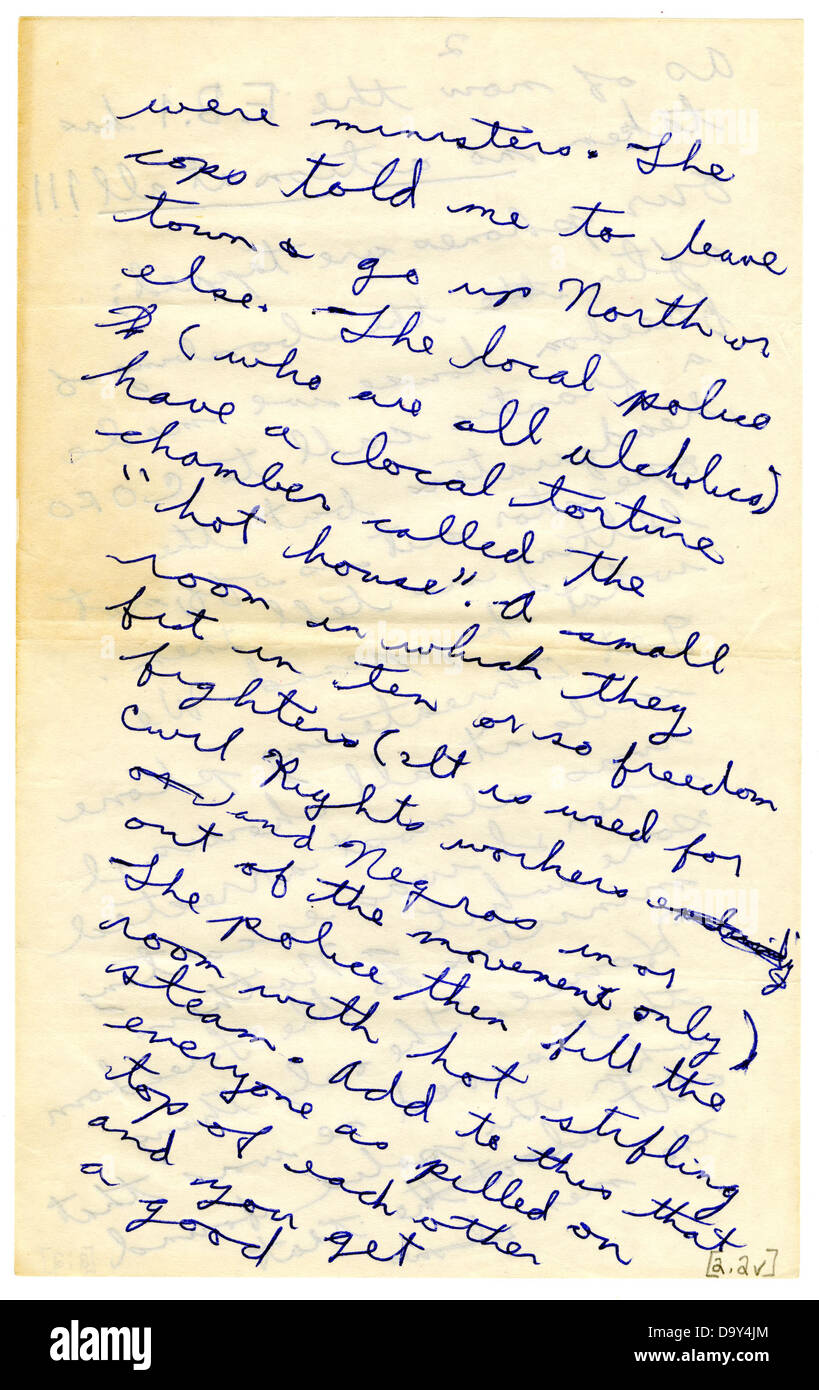 were ministers. The
cops told me to leave
town & go up North or
else. The local police
(who are all alchoholics)
have a local torture
chamber called the
"hot house". A small
room in which they
fit in ten or so freedom
fighters (It is used for
Civil Rights workers
and Negros in or
out of the movement only)
The police then fill the
room with hot stifling
steam. Add to this that
everyone as pilled on
top of each other
and you get
a good
[2.2v]
alamy
Image ID: D9Y4JM
www.alamy.com